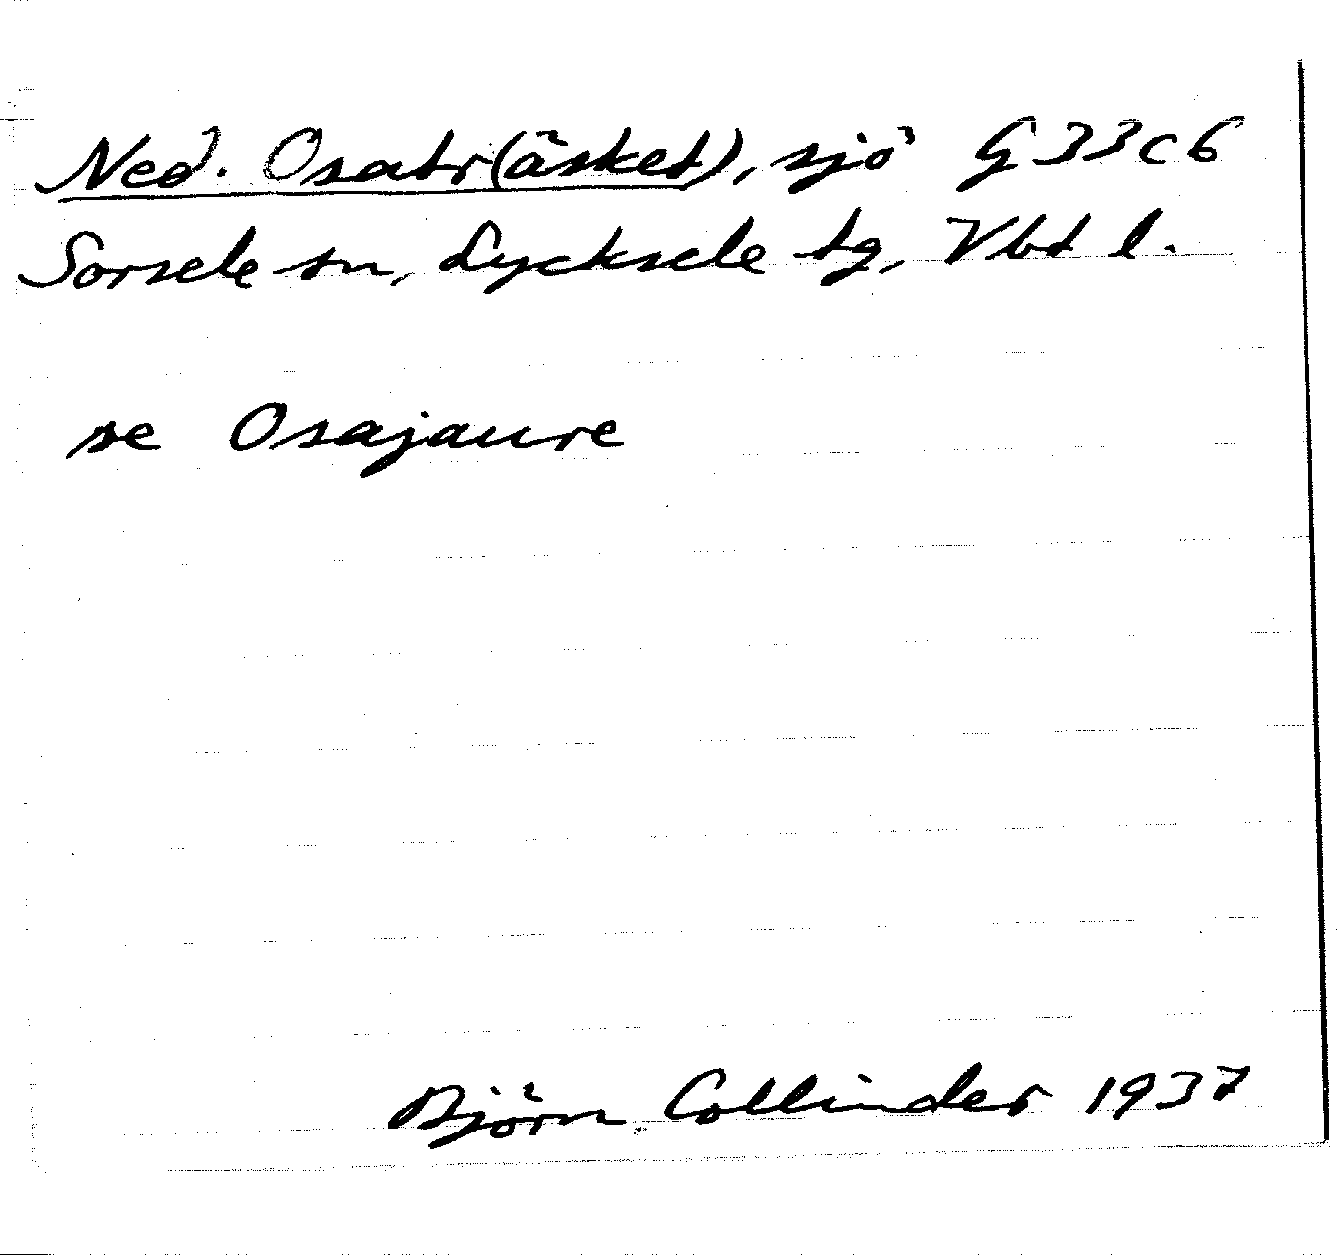 Ned. Osatr(äsket), sjö G 33 c 6
Sorsele sn, Lycksele tg, Vbt l.
se Osajaure
Björn Collinder 1937